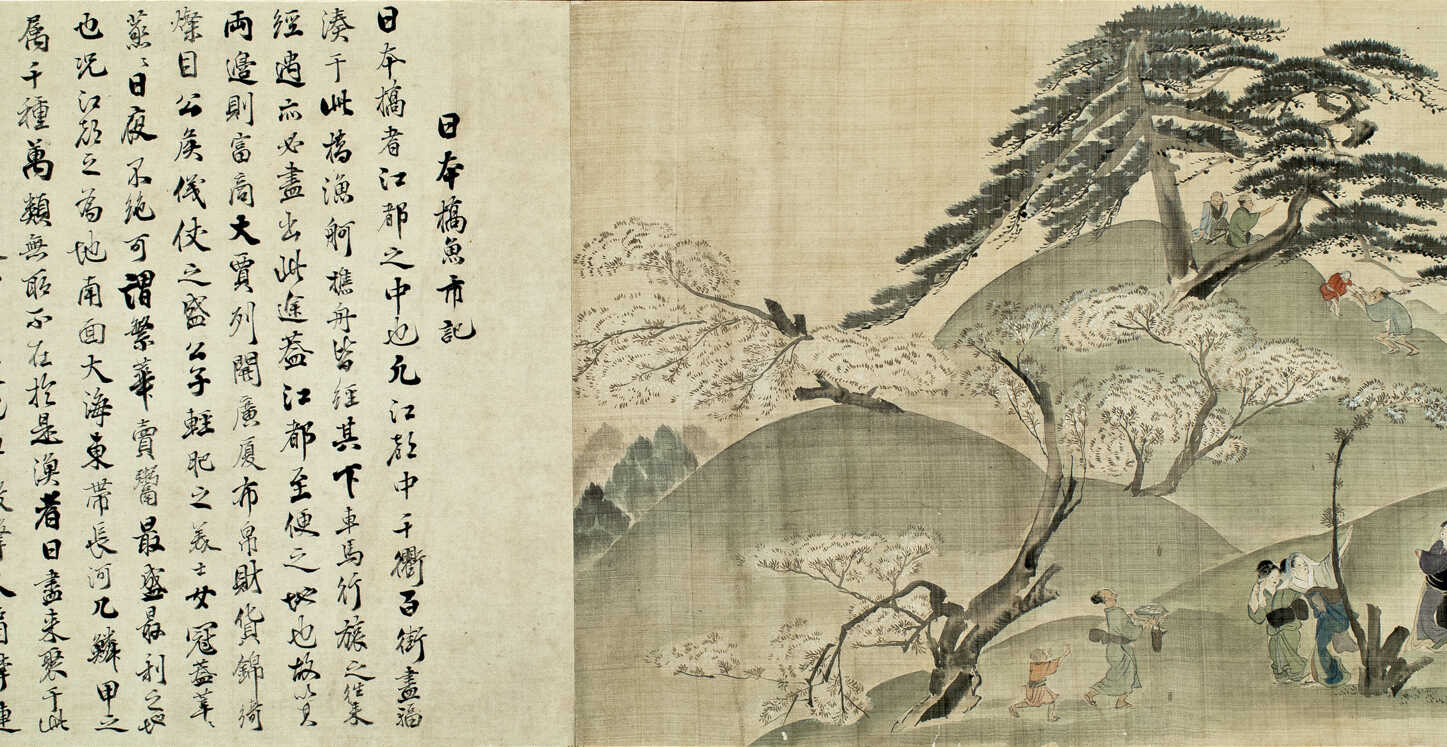 日本橋魚市記
日本橋者江都之中也凡江都中千衢百街盡福
湊于此橋漁舸樵舟皆經其下車馬行旅之往来
經過亦必盡出此途蓋江都至便之地也故以其
両邊則富商大賈列開廣厦布帛財貨錦綺
燦目公侯儀仗之盛公子輕肥之美士女冠蓋
蒸々日夜不絶可謂繁華賣鬻最盛最利之地
也況江都之為地南面大海東帶長河凡鱗甲之
属千種萬類無所不在於是漁者日盡来聚于此